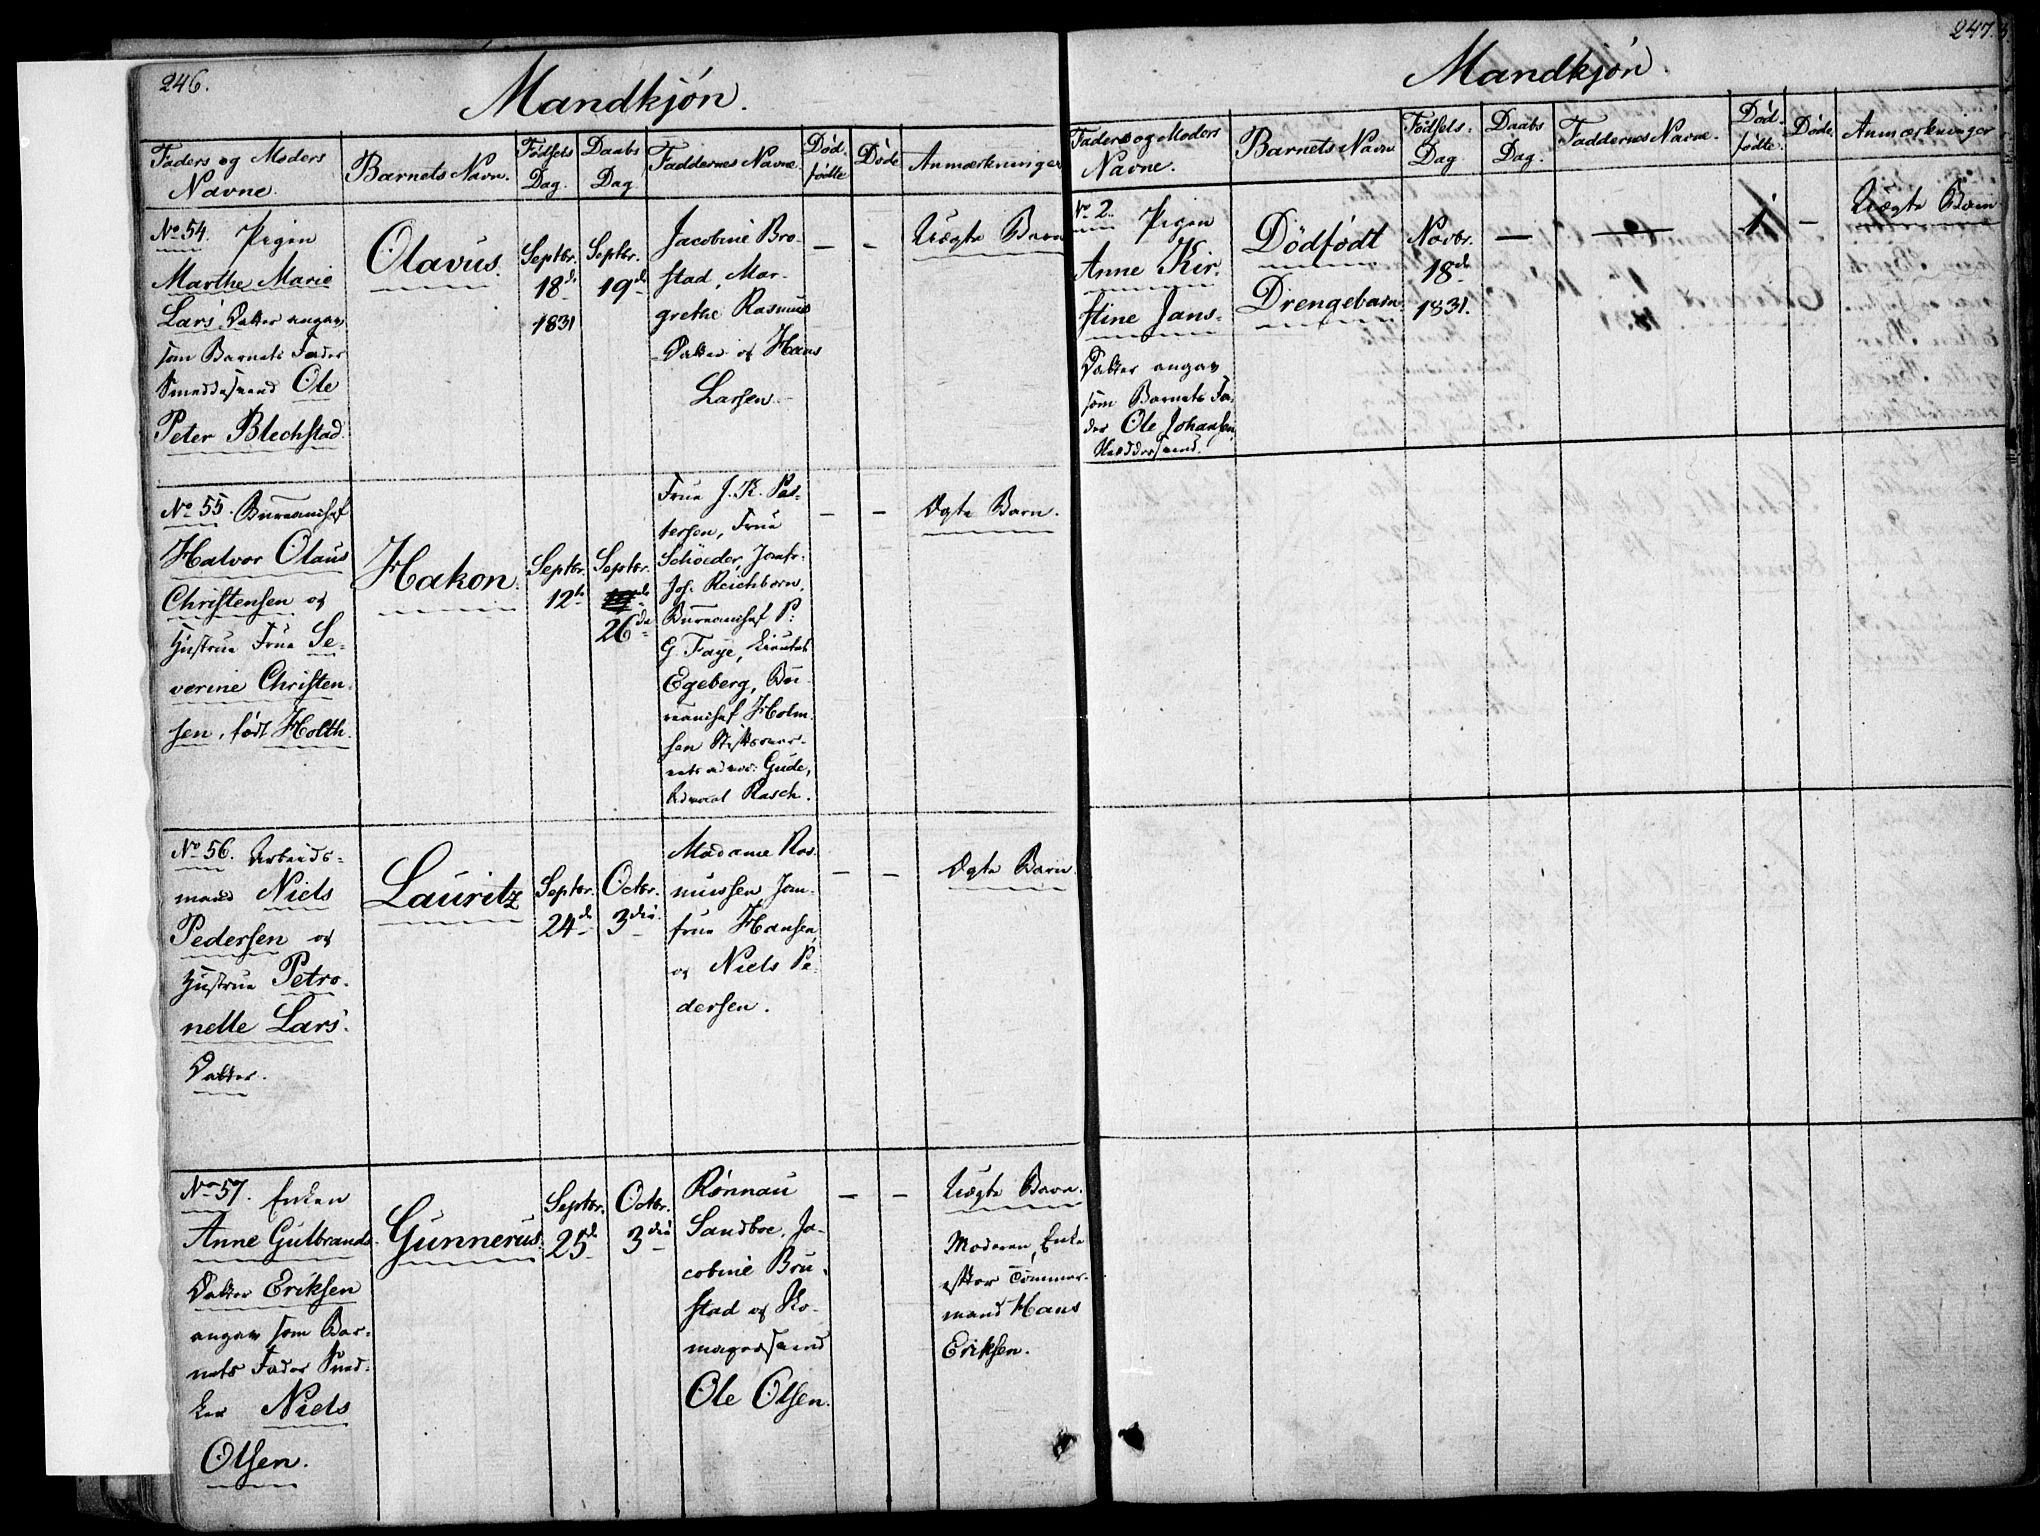 246.
Mandkjön.
Faders og Moders
Navne.
Barnets Navn.
Födsels
Dag.
Daabs
Dag
Faddernes Navne
Död-
födte
Döde
Anmærkninger
No 54. Pigen
Marthe Marie
Lars' Datter angav
som Barnets Fader
Smeddesvend Ole
Peter Blechstad.
Olavus.
Septbr.
18de
1831
Septbr.
19de
Jacobine Bro-
stad, Mar-
grethe Rasmus
Datter og Hans
Larsen.
—
—
Uægte Barn
No 55. Bureauchef
Halvor Olaus
Christensen og
Hustrue Frue Se-
verine Christen-
sen, født Holth.
Hakon.
Septbr.
12te
Septbr.
26de
Frue J. K. Pet-
tersen, Frue
Schöeder, Jomfr.
Joh. Reichborn,
Bureauchef P:
G. Faye, Lieutnt
Egeberg, Bu-
reauchef Holm-
sen
Gude,
Advocat Rasch.
—
—
Ægte Barn.
No 56. Arbeids-
mand Niels
Pedersen og
Hustrue Petro-
nelle Lars'
Datter.
Lauritz
Septbr.
24de
Octbr.
3die
Madame Ras-
mussen Jom-
frue Hansen,
og Niels Pe-
dersen.
—
—
Ægte Barn
No 57. Enken
Anne Gulbrands-
Datter Eriksen
angav som Bar-
nets Fader Sned-
ker Niels
Olsen.
Gunnerus.
Septbr.
25de
Octbr.
3die
Rönnau
Sandboe, Ja-
cobine Bru-
stad og Sko-
magersvend
Ole Olsen.
—
—
Uægte Barn.
Moderen, Enke
efter Tömmer-
mand Hans
Eriksen.
247.
Mandkjön.
Faders og Moders
Navne.
Barnets Navn
Födsels-
Dag
Daabs
Dag.
Faddernes Navne.
Död-
födte.
Döde.
Anmærkninger
No 2. Pigen
Anne Kir-
stine Jans-
Datter angav
som Barnets Fa-
der Ole Johansen
Dödfödt
Drengebarn.
Novbr.
18de
1831.
—
—
1
—
Uægte Barn